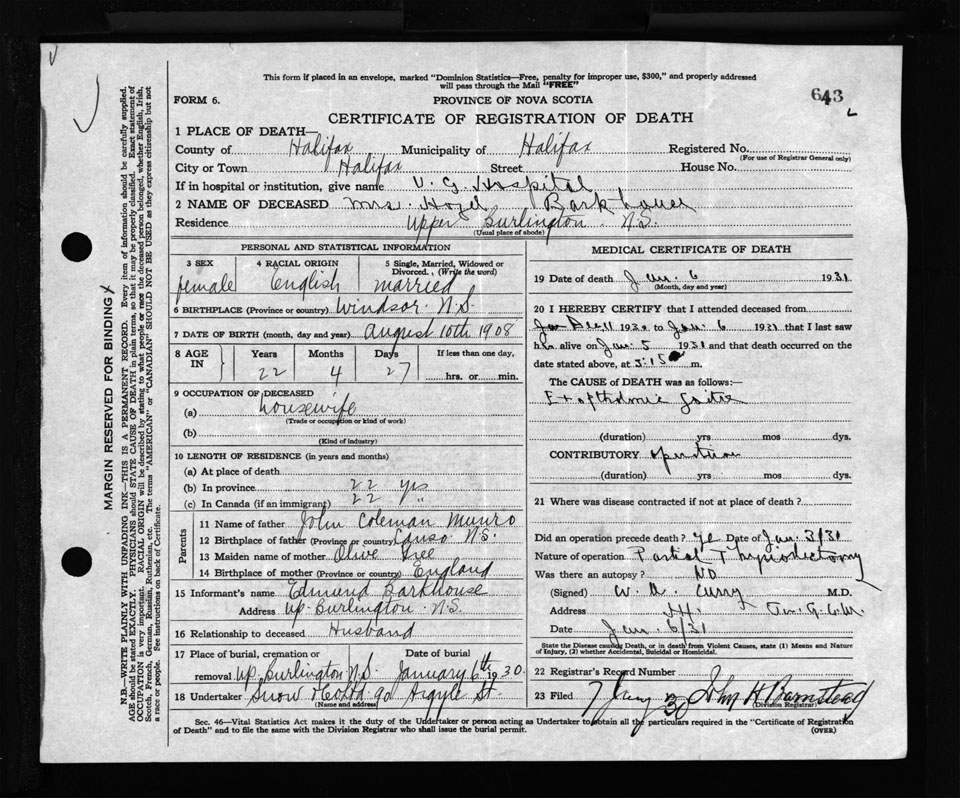 This form if placed in an envelope, marked "Dominion Statistics—Free, penalty for improper use, $300," and properly addressed
will pass through the Mail "FREE"
FORM 6.
PROVINCE OF NOVA SCOTIA
643
CERTIFICATE OF REGISTRATION OF DEATH
1 PLACE OF DEATH—
County of Halifax Municipality of Halifax Registered No.
(For use of Registrar General only)
City or Town Halifax Street House No.
If in hospital or institution, give name V. G. Hospital
2 NAME OF DECEASED Mrs. Hazel Barkhouse
Residence Upper Burlington. N.S.
(Usual place of abode)
PERSONAL AND STATISTICAL INFORMATION
3 SEX 4 RACIAL ORIGIN 5 Single, Married, Widowed or
Divorced. (Write the word)
female English married
6 BIRTHPLACE (Province or country) Windsor. N.S.
7 DATE OF BIRTH (month, day and year) August 10th 1908
8 AGE IN Years Months Days If less than one day,
22 4 27 hrs. or min.
9 OCCUPATION OF DECEASED
(a) housewife
(Trade or occupation or kind of work)
(b)
(Kind of industry)
10 LENGTH OF RESIDENCE (in years and months)
(a) At place of death
(b) In province 22 yrs
(c) In Canada (if an immigrant) 22 "
Parents
11 Name of father John Coleman Munro
12 Birthplace of father (Province or country) Canso N.S.
13 Maiden name of mother Olive
14 Birthplace of mother (Province or country) England
15 Informant's name Edmund Barkhouse
Address Up. Burlington. N.S.
16 Relationship to deceased Husband
17 Place of burial, cremation or Date of burial
removal Up. Burlington N.S. January 6th 1930.
18 Undertaker Snow & Co Ltd 90 Argyle St.
(Name and address)
MEDICAL CERTIFICATE OF DEATH
19 Date of death Jan. 6 1931
(Month, day and year)
20 I HEREBY CERTIFY that I attended deceased from
Dec 11 1930 to Jan. 6 1931 that I last saw
her alive on Jan. 5 1931 and that death occurred on the
date stated above, at 3:15 a m.
The CAUSE of DEATH was as follows:—
Exopthalmic Goitre
(duration) yrs mos dys.
CONTRIBUTORY operation
(duration) yrs mos dys.
21 Where was disease contracted if not at place of death?
Did an operation precede death? Yes Date of Jan. 3/31
Nature of operation Partial Thyroidectomy
Was there an autopsy? No
(Signed) W. A. Curry M.D.
Address
Date Jan. 6/31
State the Disease causing Death, or in death from Violent Causes, state (1) Means and Nature
of Injury, (2) whether Accidental, Suicidal or Homicidal.
22 Registrar's Record Number
23 Filed 7 Jany 30 John H Barnstead
(Division Registrar)
Sec. 46—Vital Statistics Act makes it the duty of the Undertaker or person acting as Undertaker to obtain all the particulars required in the "Certificate of Registration
of Death" and to file the same with the Division Registrar who shall issue the burial permit. (OVER)
MARGIN RESERVED FOR BINDING
N.B.—WRITE PLAINLY WITH UNFADING INK—THIS IS A PERMANENT RECORD. Every item of information should be carefully supplied.
AGE should be stated EXACTLY. PHYSICIANS should STATE CAUSE OF DEATH in plain terms, so that it may be properly classified. Exact statement of
OCCUPATION is very important. RACIAL ORIGIN will be described by stating to what people or race the deceased person belonged, whether English, Irish,
Scotch, French, German, Russian, Ruthenian, etc. The terms "AMERICAN" or "CANADIAN" SHOULD NOT BE USED as they express citizenship but not
a race or people. See instructions on back of Certificate.